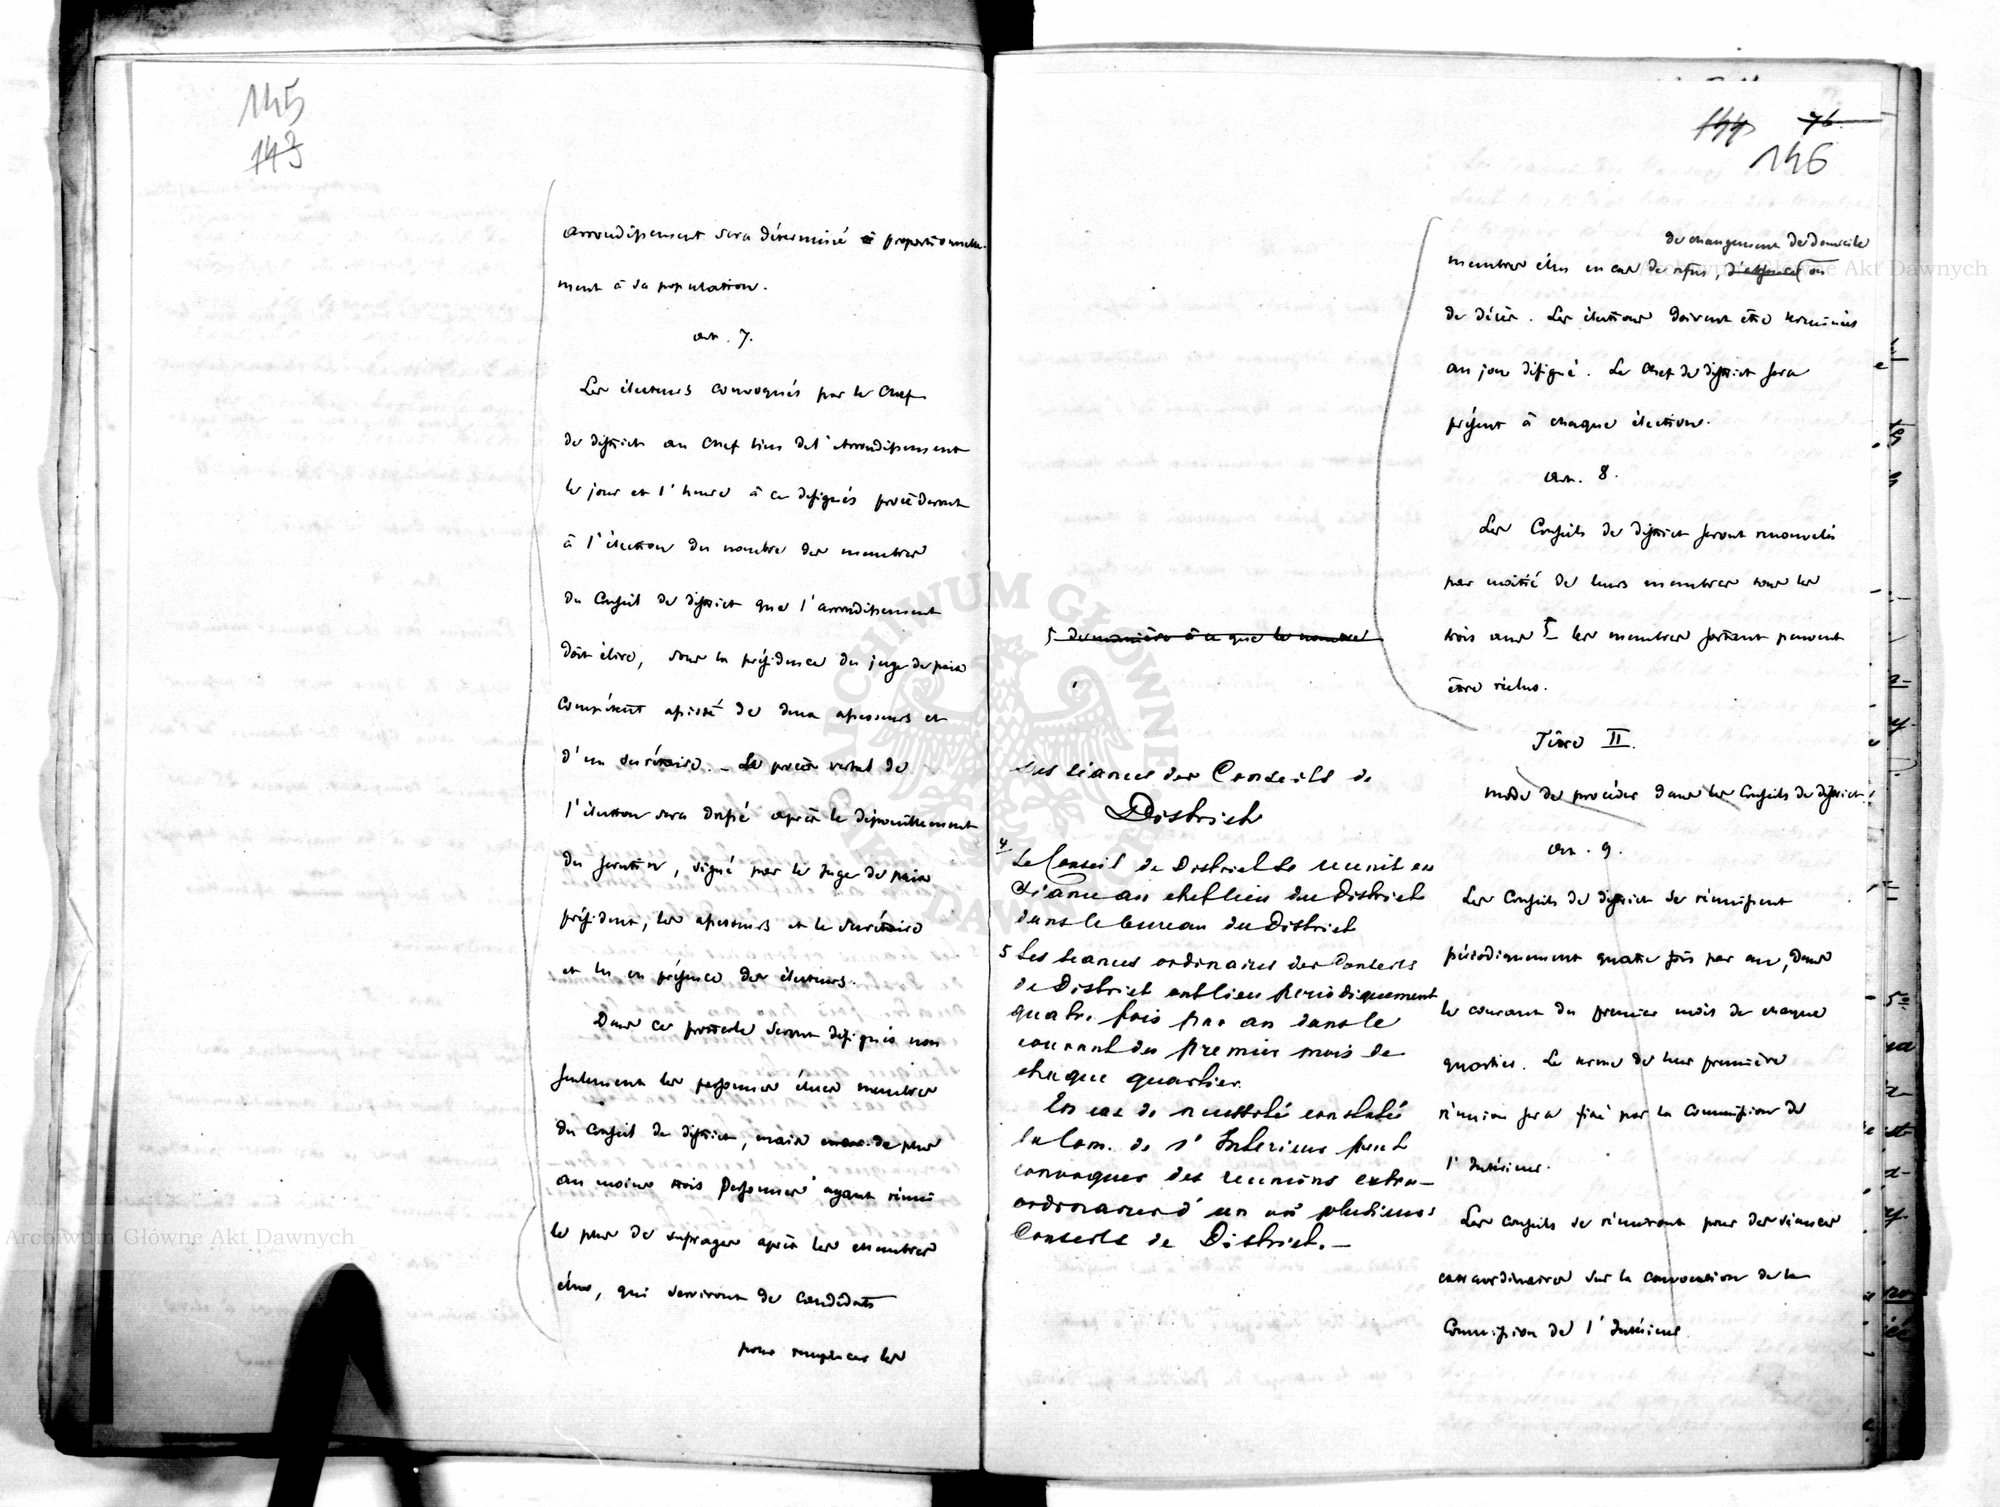 145
143
arrondissement sera déterminé à proportionnelle-
ment à sa population.
art. 7.
Les électeurs convoqués par le Chef
de district au Chef lieu de l'Arrondissement
le jour et l'heure à ce désignés procéderont
à l'élection du nombre des membres
du Conseil de district que l'arrondissement
doit élire, sous la présidence du juge de paix
compétent assisté de deux assesseurs et
d'un secrétaire. – Le procès verbal de
l'élection sera dressé après le dépouillement
du scrutin, signé par le Juge de paix
président, les assesseurs et le secrétaire
et lu en présence des électeurs.
Dans ce protocole seront désignés non
seulement les personnes élues membres
du Conseil de district, mais de plus
au moins trois personnes ayant réuni
le plus de suffrages après les membres
élus, qui serviront de candidats
pour remplacer les
144 76
146
de changement de domicile
membres élus en cas de refus, d'absence ou
de décès. Les élections doivent être terminées
au jour désigné. Le Chef de district sera
présent à chaque élection.
art. 8.
Les Conseils de district seront renouvelés
par moitié de leurs membres tous les
trois ans les membres sortant peuvent
être réélus.
Titre II.
mode de procéder dans les Conseils de district.
art. 9.
Les Conseils de district se réunissent
périodiquement quatre fois par an, dans
le courant du premier mois de chaque
quartier. Le terme de leur première
réunion sera fixé par la Commission de
l'Intérieur.
Les conseils se réuniront pour des séances
extraordinaires sur la convocation de la
Commission de l'Intérieur
de manière à ce que le nombre
Des séances des Conseils de
District
4 Le Conseil de District se reunit en
séance au cheflieu du District
dans le bureau du District
5 Les seances ordinaires des Conseils
de District ont lieu periodiquement
quatre fois par an dans le
courant du premier mois de
chaque quartier.
En cas de necessité constatée
la Com. de l'Interieur peut
convoquer des reunions extra-
ordinaires d'un ou plusieurs
Conseils de District. –
ARCHIWUM GŁÓWNE AKT DAWNYCH
Archiwum Główne Akt Dawnych
Archiwum Główne Akt Dawnych